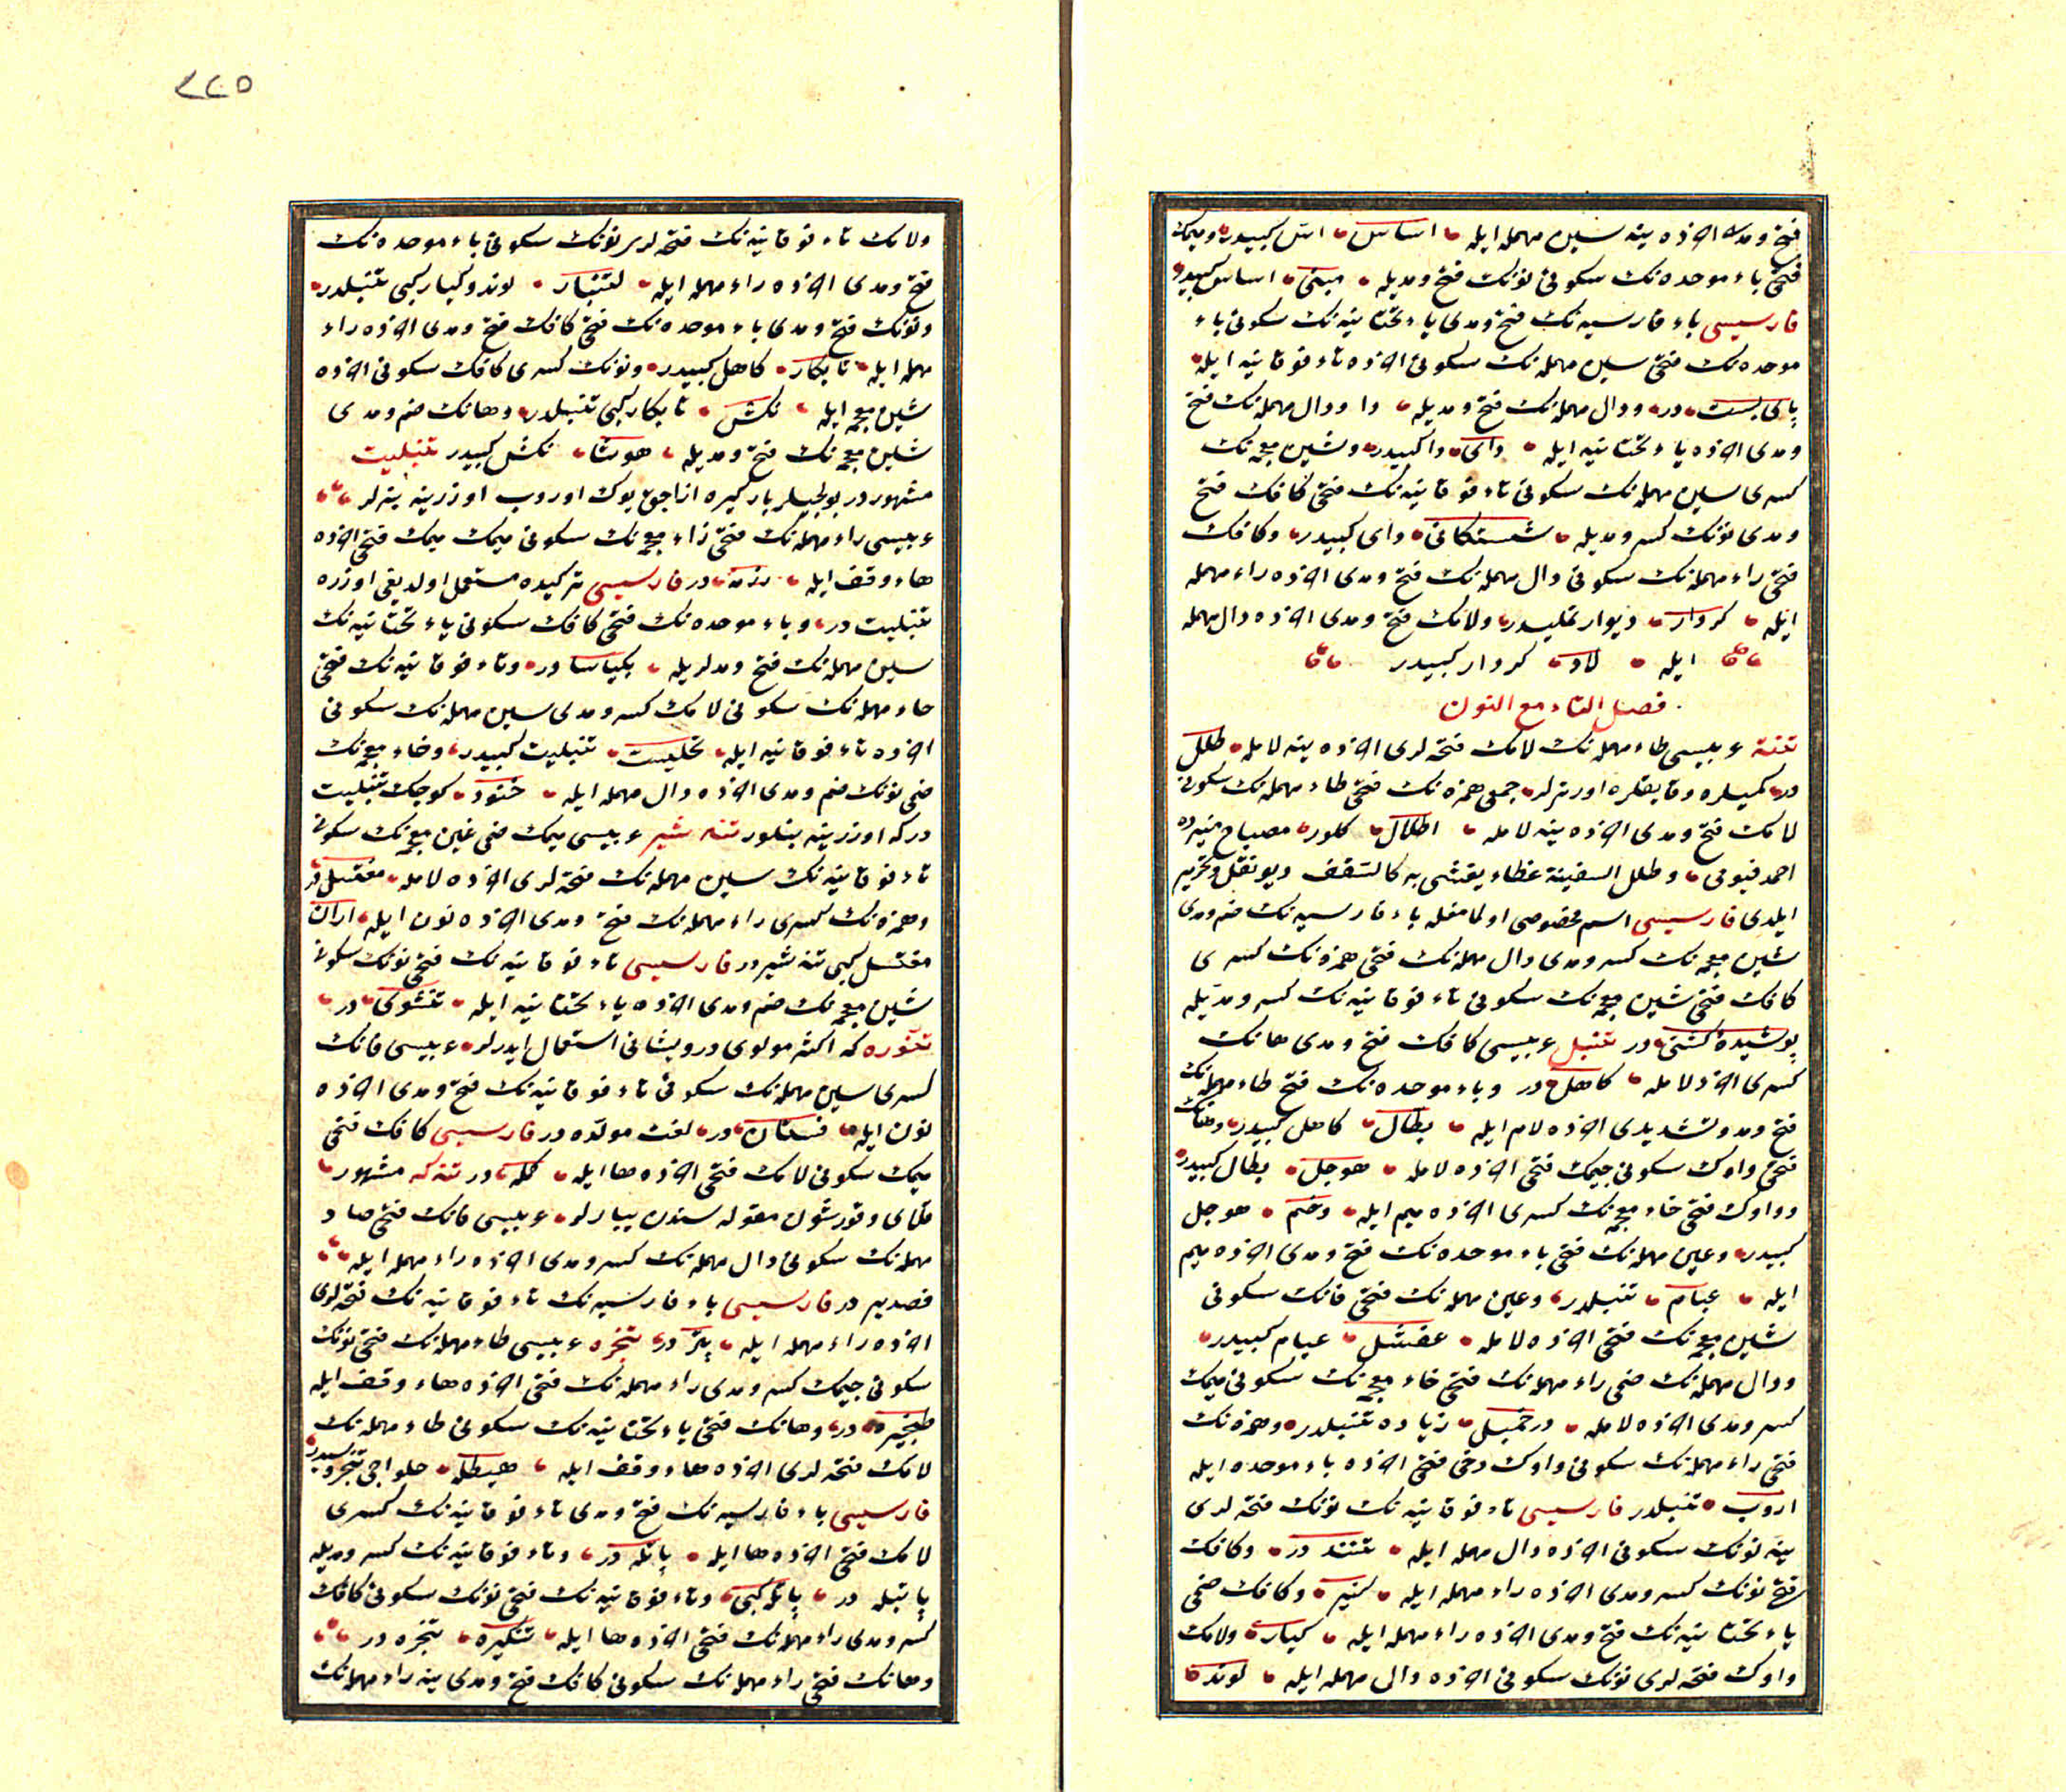 فتح ومدى اخرده ينه سين مهمله ايله اساس اس كبيدر وميمك
فتحى باء موحده نك سكونى نونك فتح ومديله مبنى اساس كبيدر
فارسيسى باء فارسيه نك فتح ومدى ياء تحتانيه نك سكونى باء
موحده نك فتحى سين مهمله نك سكونى اخرده تاء فوقانيه ايله
پاى بست در ودال مهمله نك فتح ومديله دا ودال مهمله نك فتح
ومدى اخرده ياء تحتانيه ايله داى دا كبيدر وشين معجمه نك
كسرى سين مهمله نك سكونى تاء فوقانيه نك فتحى كافك فتح
ومدى نونك كسر ومديله شستكانى داى كبيدر وكافك
فتحى راء مهمله نك سكونى دال مهمله نك فتح ومدى اخرده راء مهمله
ايله كردار ديوار تمليدر ولامك فتح ومدى اخرده دال مهمله
ايله لاد كردار كبيدر
فصل التاء مع النون
تنته عربيسى طاء مهمله نك لامك فتحه لرى اخرده ينه لامله طلل
در كميلره وقايقلره اورترلر جمعى همزه نك فتحى طاء مهمله نك سكونى
لامك فتح ومدى اخرده ينه لامله اطلال كلور مصباح منيرده
احمد فيومى وطلل السفينة غطاء يغشى به كالسقف ديو نقل وتحرير
ايلدى فارسيسى اسم مخصوصى اولمامغله باء فارسيه نك ضم ومدى
شين معجمه نك كسر ومدى دال مهمله نك فتحى همزه نك كسرى
كافك فتحى شين معجمه نك سكونى تاء فوقانيه نك كسر ومديله
پوشيدۀ كشتى در تنبل عربيسى كافك فتح ومدى هانك
كسرى اخرى لامله كاهل در وباء موحده نك فتح طاء مهمله نك
فتح ومد وتشديدى اخرده لام ايله بطال كاهل كبيدر وهانك
فتحى واوك سكونى جيمك فتحى اخرده لامله هوجل بطال كبيدر
وواوك فتحى خاء معجمه نك كسرى اخرده ميم ايله وخم هوجل
كبيدر وعين مهمله نك فتحى باء موحده نك فتح ومدى اخرده ميم
ايله عبام تنبلدر وعين مهمله نك فتحى فانك سكونى
شين معجمه نك فتحى اخرده لامله عفشل عبام كبيدر
ودال مهمله نك ضمى راء مهمله نك فتحى خاء معجمه نك سكونى ميمك
كسر ومدى اخرده لامله درخميل زياده تنبلدر وهمزه نك
فتحى راء مهمله نك سكونى واوك دخى فتحى اخرده باء موحده ايله
اروب تنبلدر فارسيسى تاء فوقانيه نك نونك فتحه لرى
ينه نونك سكونى اخرده دال مهمله ايله تنند در وكافك
فتح نونك كسر ومدى اخرده راء مهمله ايله كنير وكافك ضمى
ياء تحتانيه نك فتح ومدى اخرده راء مهمله ايله كيار ولامك
واوك فتحه لرى نونك سكونى اخرده دال مهمله ايله لوند
٢٢٥
ولامك تاء فوقانيه نك فتحه لرى نونك سكونى باء موحده نك
فتح ومدى اخرده راء مهمله ايله لتنبار لوند وكيار كبى تنبلدر
ونونك فتح ومدى باء موحده نك فتحى كافك فتح ومدى اخرده راء
مهمله ايله نابكار كاهل كبيدر ونونك كسرى كافك سكونى اخرده
شين معجمه ايله نكش نابكار كبى تنبلدر وهانك ضم ومدى
شين معجمه نك فتح ومديله هوشا نكش كبيدر تنبليت
مشهور در يولجيلر باركيره ازاجق يوك اوروب اوزرينه بنرلر
عربيسى راء مهمله نك فتحى زاء معجمه نك سكونى ميمك ميمك فتحى اخرده
هاء وقف ايله رزمه در فارسيسى تركيده مستعمل اولديغى اوزره
تنبليت در وباء موحده نك فتحى كافك سكونى ياء تحتانيه نك
سين مهمله نك فتح ومدلريله بكياسا در وتاء فوقانيه نك فتحى
حاء مهمله نك سكونى لامك كسر ومدى سين مهمله نك سكونى
اخرده تاء فوقانيه ايله تحليست تنبليت كبيدر وخاء معجمه نك
ضمى نونك ضم ومدى اخرده دال مهمله ايله خنود كوچك تنبليت
دركه اوزرينه بنلور تنه شير عربيسى ميمك ضمى غين معجمه نك سكونى
تاء فوقانيه نك سين مهمله نك فتحه لرى اخرده لامله مغتسل در
وهمزه نك كسرى راء مهمله نك فتح ومدى اخرده نون ايله اران
مغتسل كبى تنه شير در فارسيسى تاء فوقانيه نك فتحى نونك سكونى
شين معجمه نك ضم ومدى اخرده ياء تحتانيه ايله تنشوى در
تنوره كه اكثر مولوى درويشانى استعمال ايدرلر عربيسى فانك
كسرى سين مهمله نك سكونى تاء فوقانيه نك فتح ومدى اخرده
نون ايله فستان در لغت مولده در فارسيسى كافك فتحى
ميمك سكونى لامك فتحى اخرده ها ايله كمله در تنكه مشهور
قلاى وقورشون مقوله سندن يپارلر عربيسى فانك فتحى صاد
مهمله نك سكونى دال مهمله نك كسر ومدى اخرده راء مهمله ايله
فصدير در فارسيسى باء فارسيه نك تاء فوقانيه نك فتحه لرى
اخرده راء مهمله ايله پتر در تنجره عربيسى طاء مهمله نك فتحى نونك
سكونى جيمك كسر ومدى راء مهمله نك فتحى اخرده هاء وقف ايله
طنجيره در وهانك فتحى ياء تحتانيه نك سكونى طاء مهمله نك
لامك فتحه لرى اخرده هاء وقف ايله هيطله حلواجى تنجره سيدر
فارسيسى باء فارسيه نك فتح ومدى تاء فوقانيه نك كسرى
لامك فتحى اخرده ها ايله پاتله در وتاء فوقانيه نك كسر ومديله
پاتيله در پاتله كبى وتاء فوقانيه نك فتحى نونك سكونى كافك
كسر ومدى راء مهمله نك فتحى اخرده ها ايله تنكيره تنجره در
وهانك فتحى راء مهمله نك سكونى كافك فتح ومدى ينه راء مهمله نك